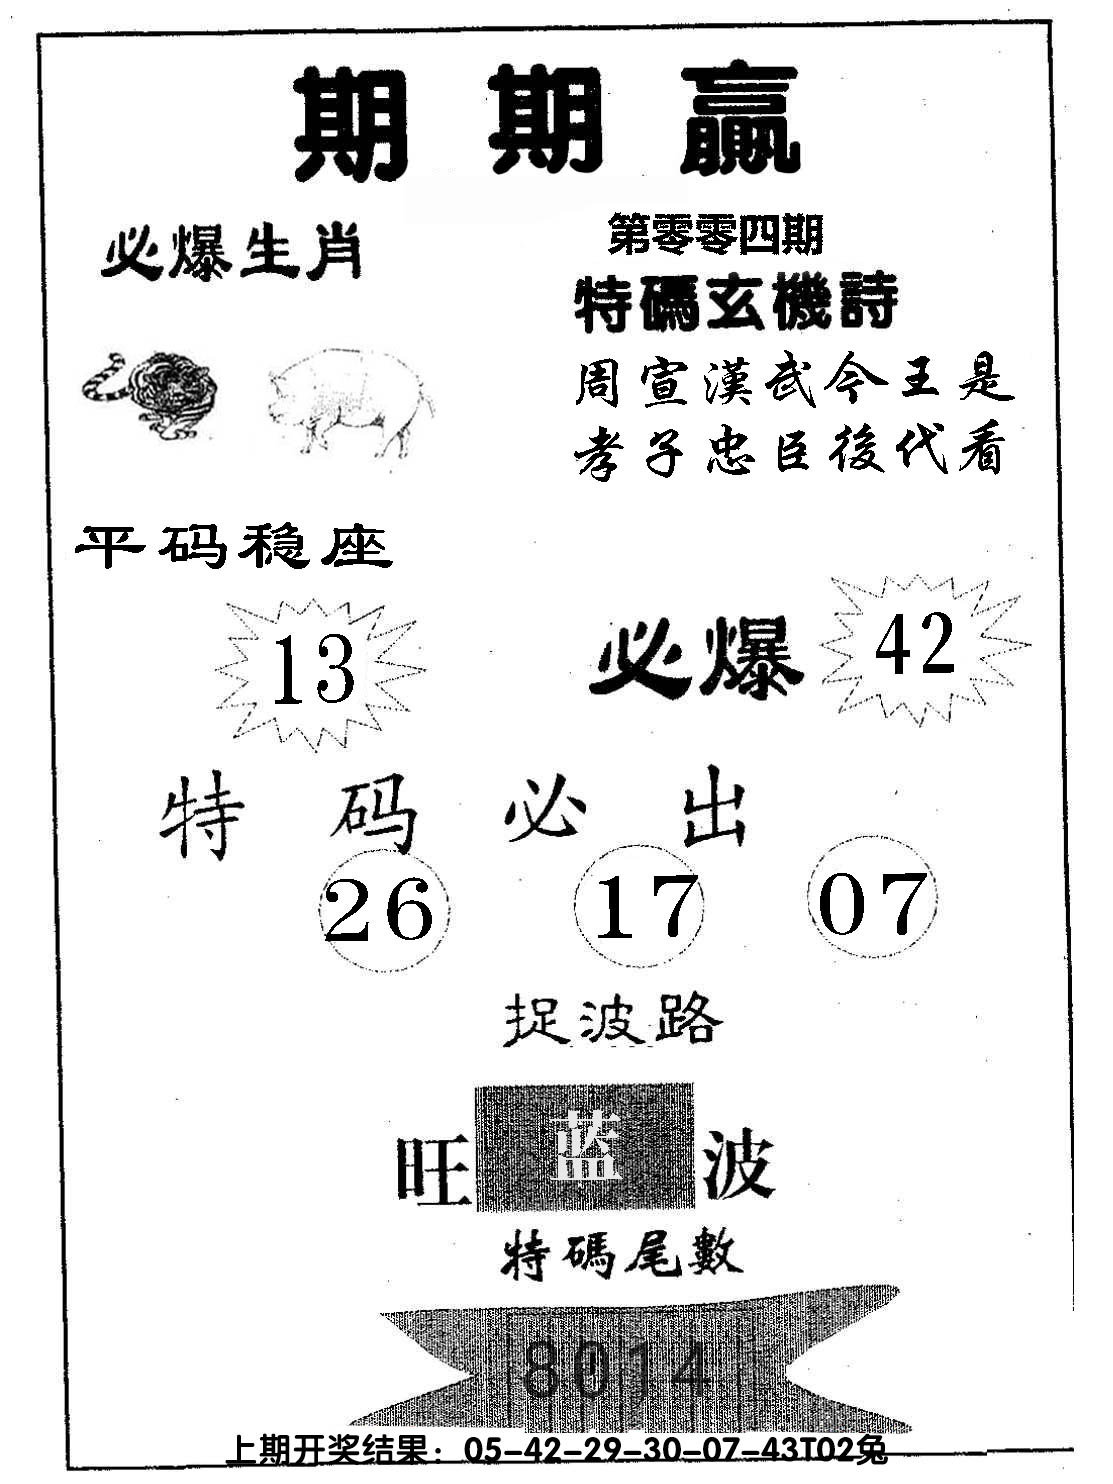 期期贏
必爆生肖
第零零四期
特碼玄機詩
周宣漢武今王是
孝子忠臣後代看
平码稳座
13
必爆
42
特码必出
26 17 07
捉波路
旺蓝波
特碼尾數
8014
上期开奖结果：05-42-29-30-07-43T02兔